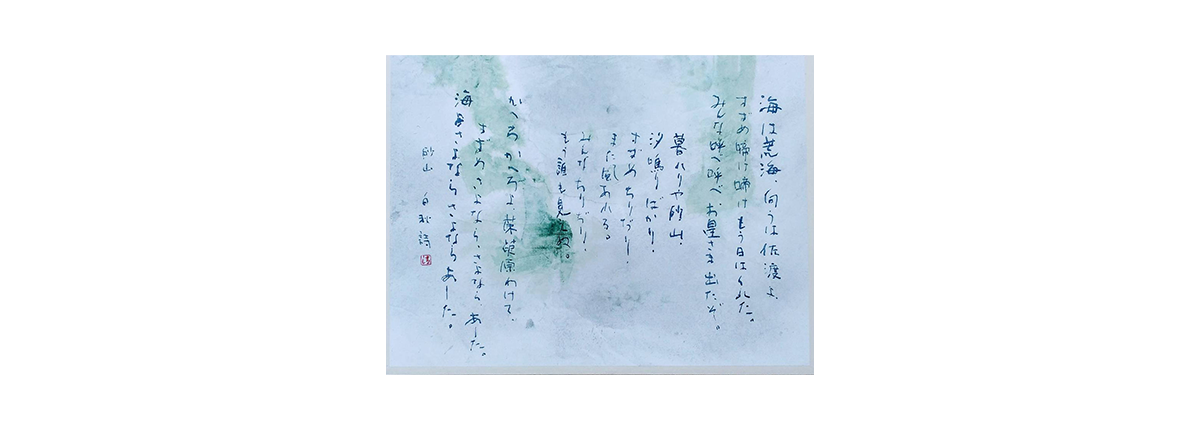 海は荒海、向うは佐渡よ、
すずめ啼け啼けもう日はくれた。
みんな呼べ呼べ、お星さま出たぞ。
暮れりや砂山、
汐鳴りばかり、
すずめちりぢり、
また風あれる。
みんなちりぢり、
もう誰も見えぬ。
かへろかへろよ、茱萸原わけて、
すずめさよなら、さよなら、あした。
海よさよならさよならあした。
砂山 白秋詩